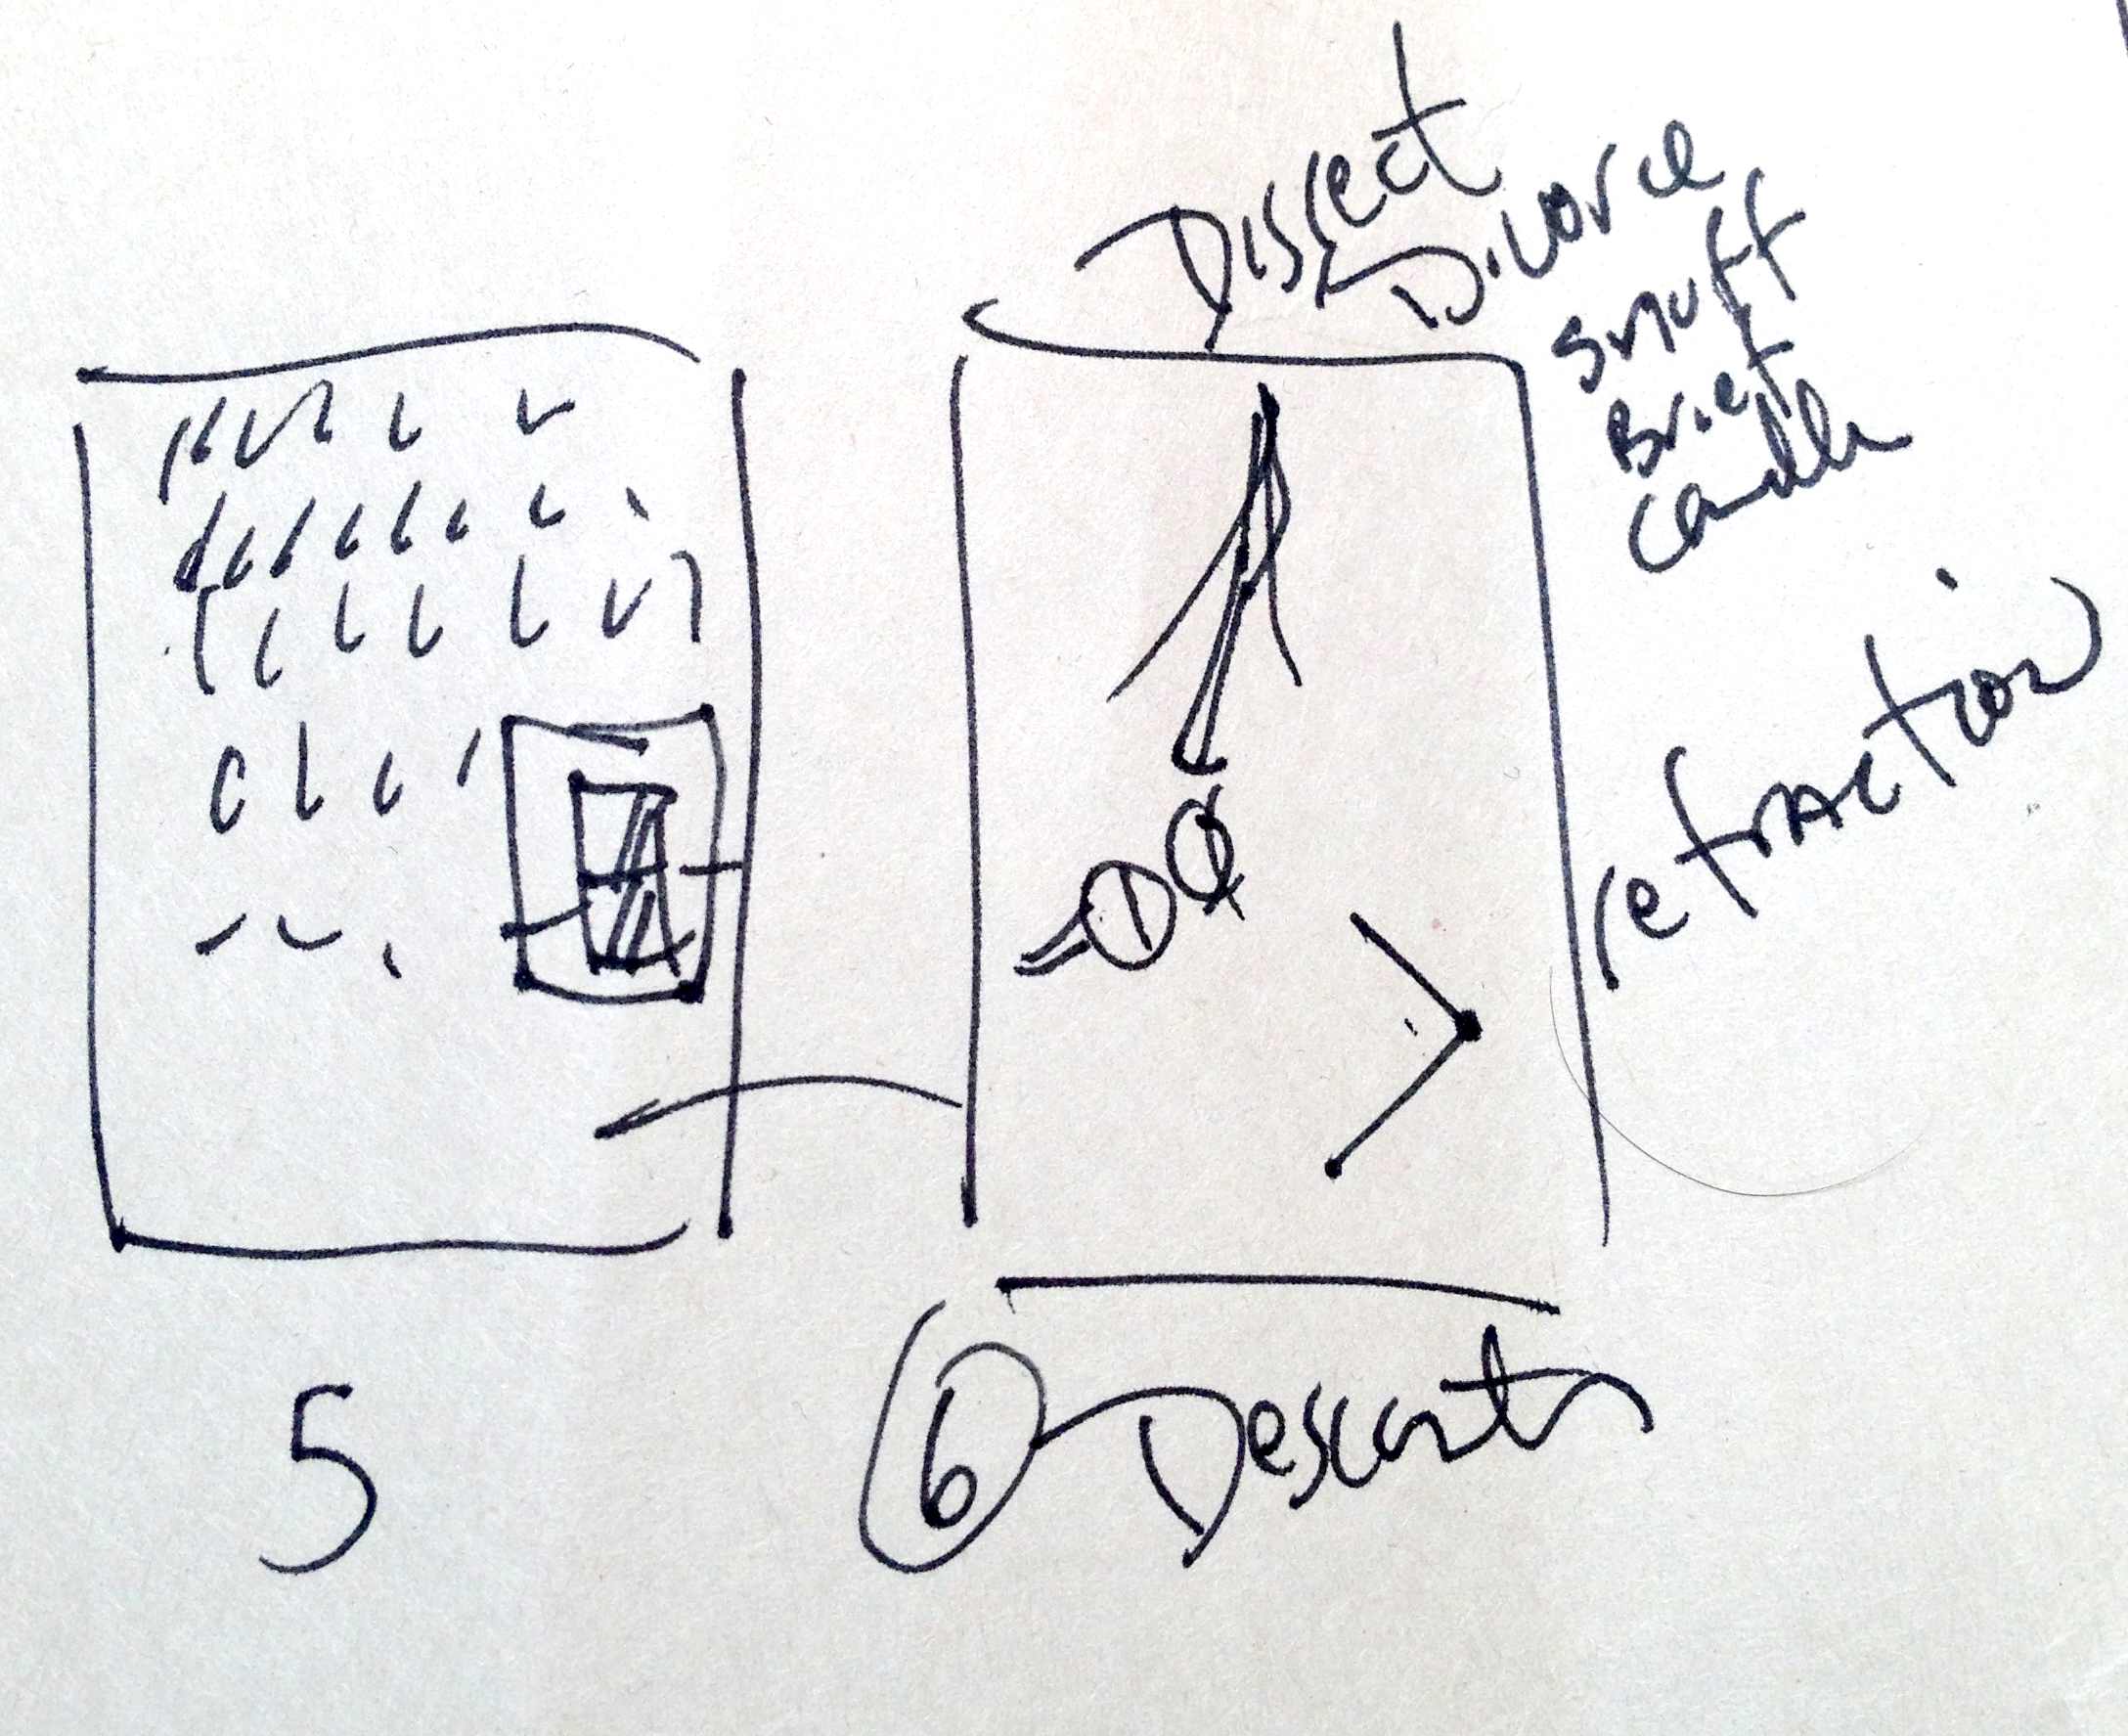 Dissect
Divorce
Snuff
Brief
Candle
refraction
5
6